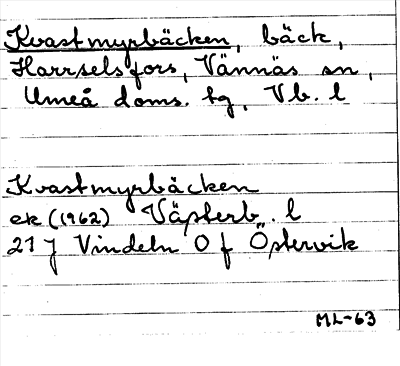 Kvastmyrbäcken, bäck,
Harrselsfors, Vännäs sn,
Umeå doms. tg, Vb. l
Kvastmyrbäcken
ek (1962) Västerb. l
21 J Vindeln 0 f Östervik
ML-63